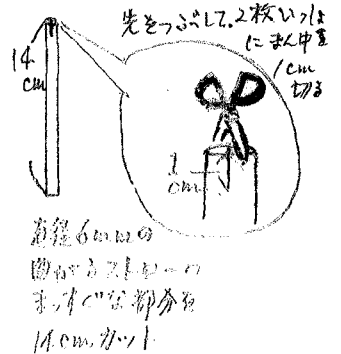 先をつぶして、2枚いっしょ
にまん中を
1cm
切る
14
cm
1
cm
直径6mmの
曲がるストローの
まっすぐな部分を
14cmカット